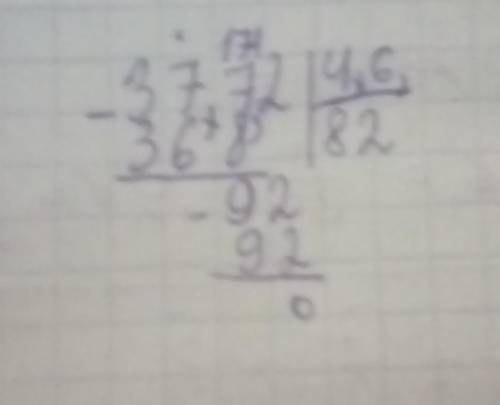 - 37,72 | 4,6,
36 8 | 82
- 92
92
0